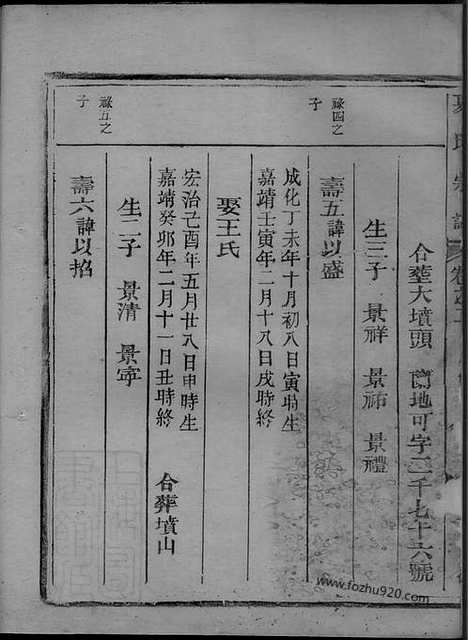 夏氏宗譜 卷之二
合塟大墳頭 地可字二千七百六號
生三子 景祥 景祐 景禮
祿四之子
壽五諱以盛
成化丁未年十月初八日寅時生
嘉靖壬寅年二月十八日戌時終
娶王氏
宏治己酉年五月廿八日申時生
嘉靖癸卯年二月十一日丑時終 合葬墳山
生二子 景清 景寧
祿五之子
壽六諱以招
www.fozhu920.com